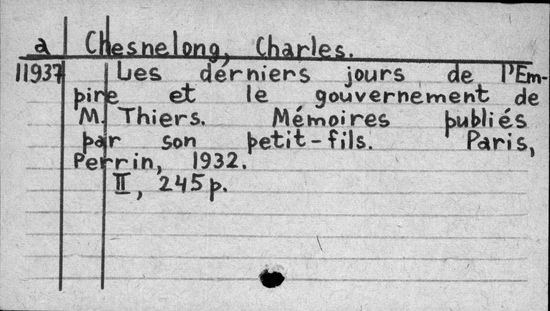 a Chesnelong, Charles.
11937 Les derniers jours de l'Em-
pire et le gouvernement de
M. Thiers. Mémoires publiés
par son petit-fils. Paris,
Perrin, 1932.
II, 245 p.